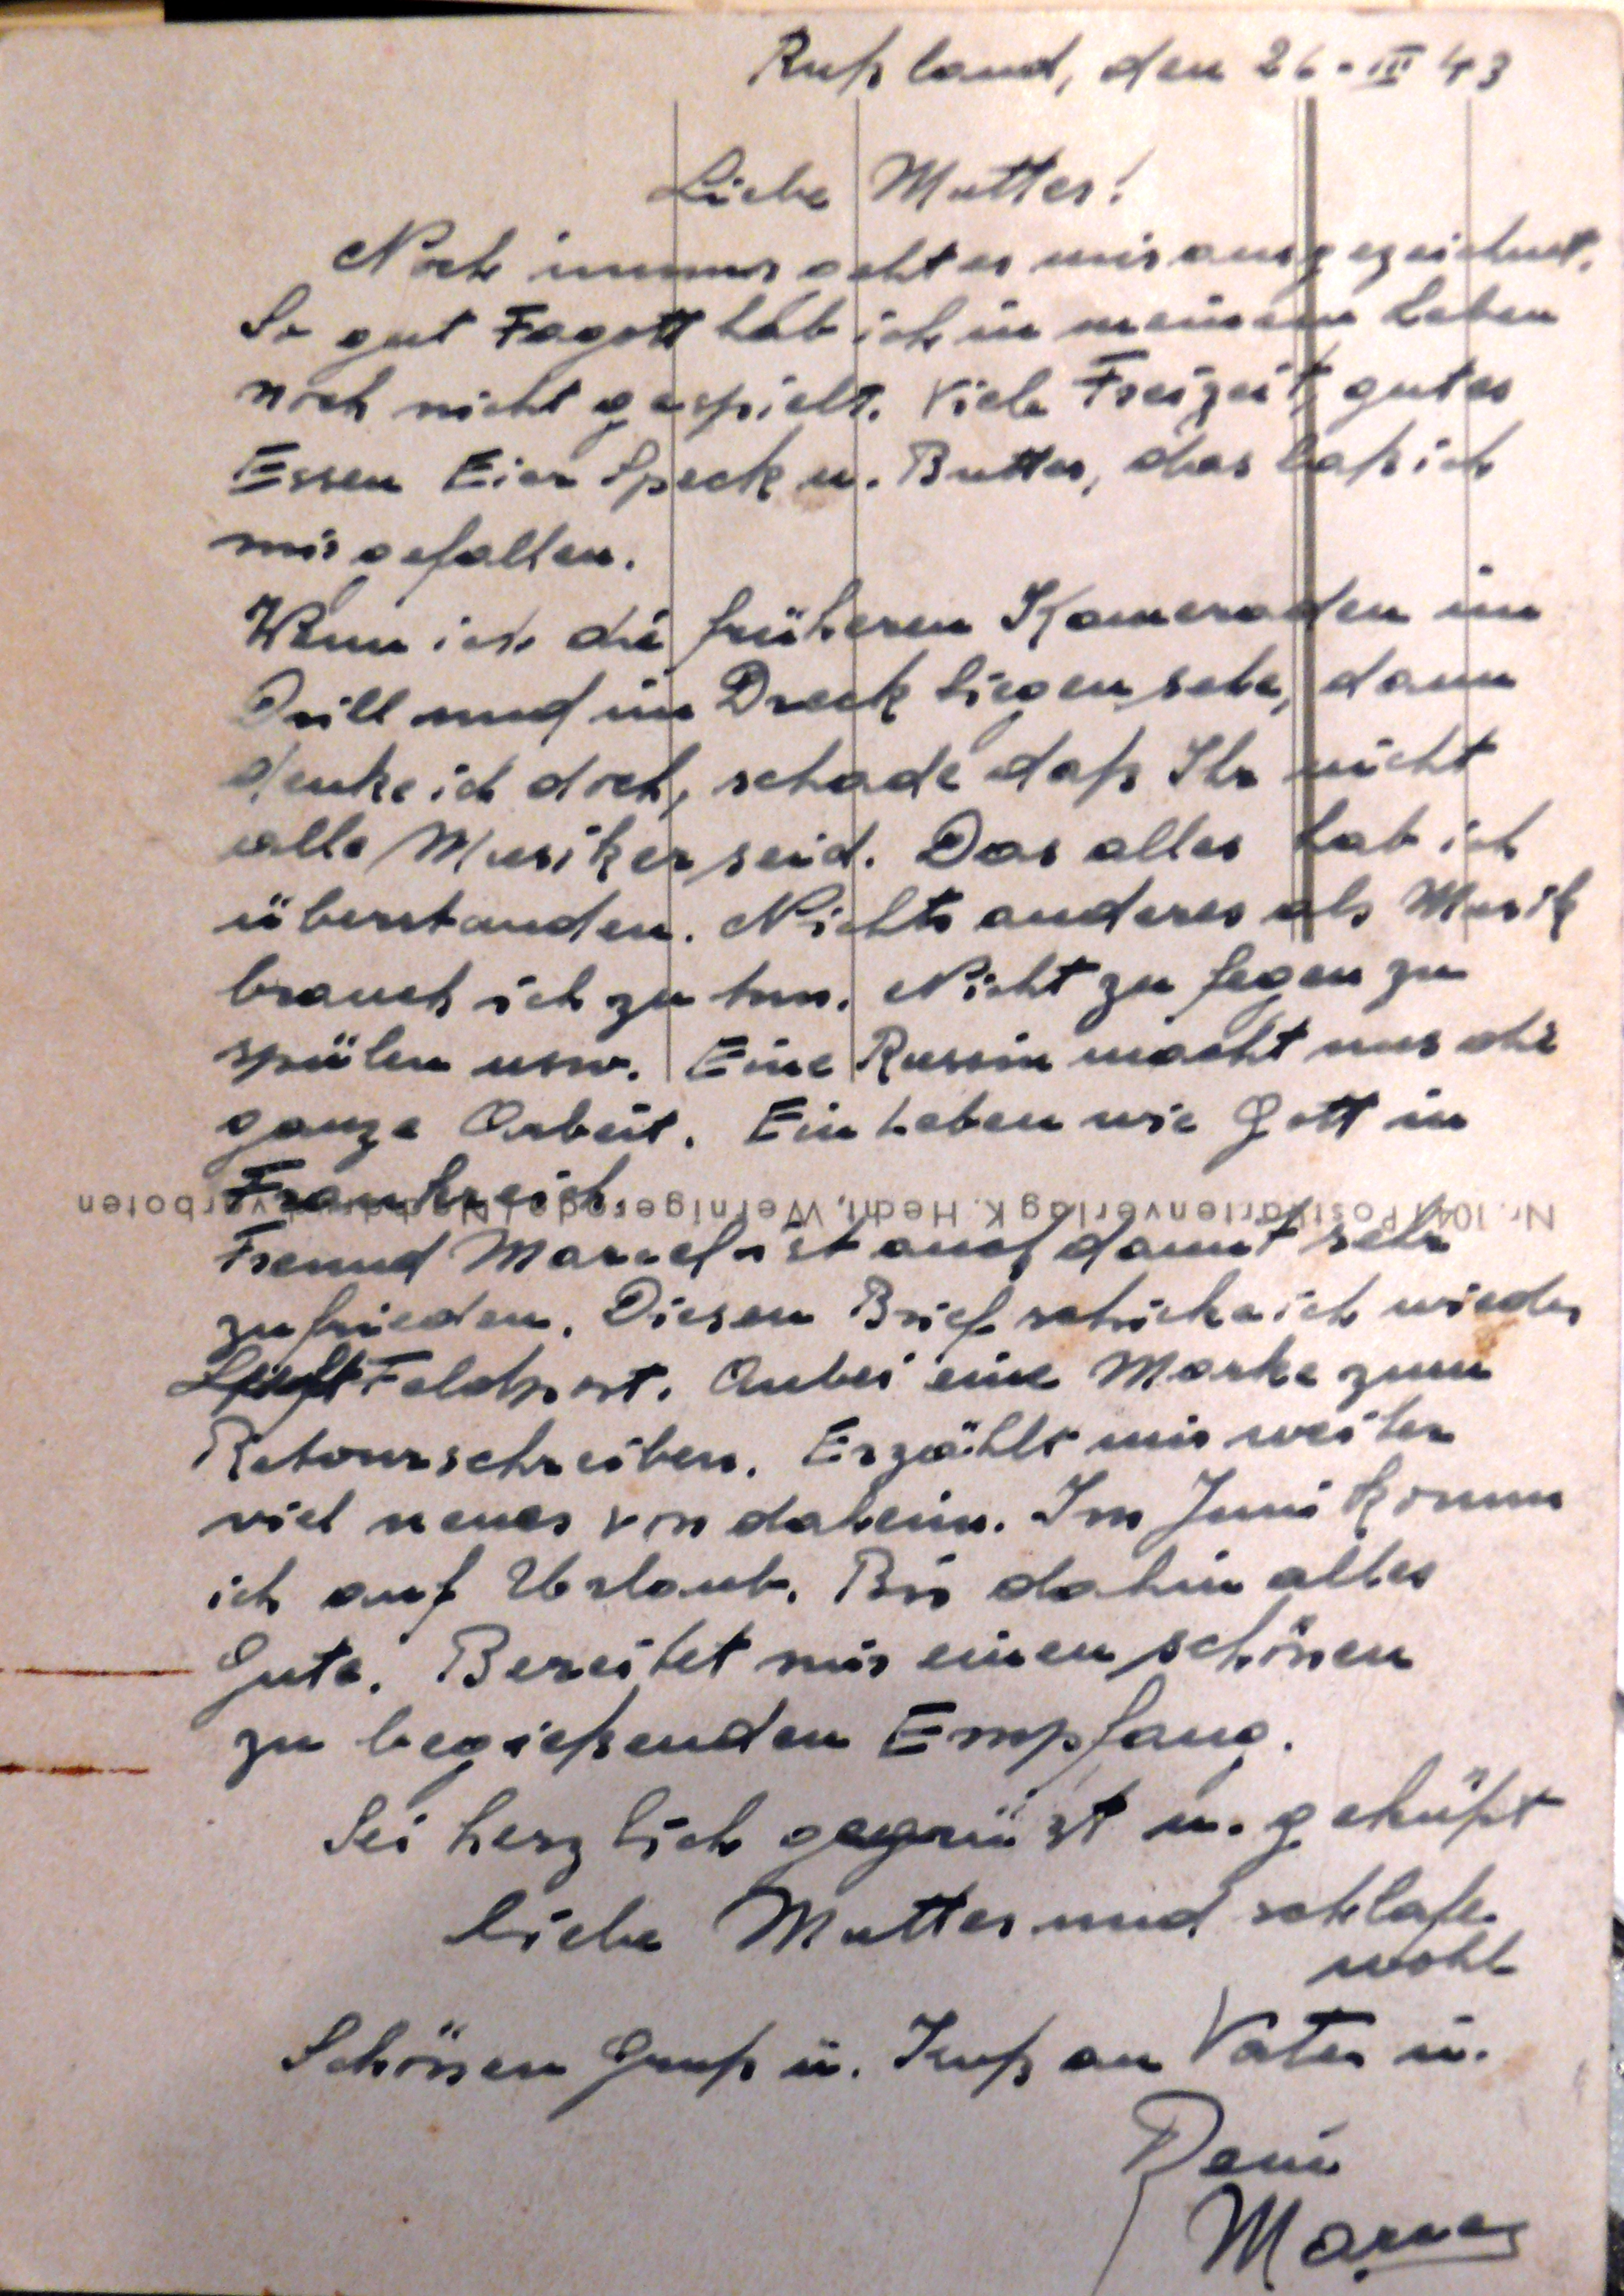 Rußland, den 26. III 43
Liebe Mutter!
Noch immer geht es mir ausgezeichnet.
So gut Fagott hab ich in meinem Leben
noch nicht gespielt. Viele Freizeit, gutes
Essen Eier Speck u. Butter, das laß ich
mir gefallen.
Wenn ich die früheren Kameraden im
Drill und im Dreck liegen sehe, dann
denke ich doch, schade daß Ihr nicht
alle Musiker seid. Das alles hab ich
überstanden. Nichts anderes als Musik
brauch ich zu tun. Nicht zu fegen zu
spülen usw. Eine Russin macht uns die
ganze Arbeit. Ein Leben wie Gott in
Frankreich.
Nr. 1041 Postkartenverlag K. Hecht, Wernigerode / Nachdruck verboten
Freund Marcel ist auch damit sehr
zufrieden. Diesen Brief schicke ich wieder
Luft Feldpost. Anbei eine Marke zum
Retourschreiben. Erzählt mir weiter
viel neues von daheim. Im Juni komm
ich auf Urlaub. Bis dahin alles
Gute. Bereitet mir einen schönen
zu begießenden Empfang.
Sei herzlich gegrüst u. geküßt
liebe Mutter und schlafe
wohl
Schönen Gruß u. Kuß an Vater u.
Dein